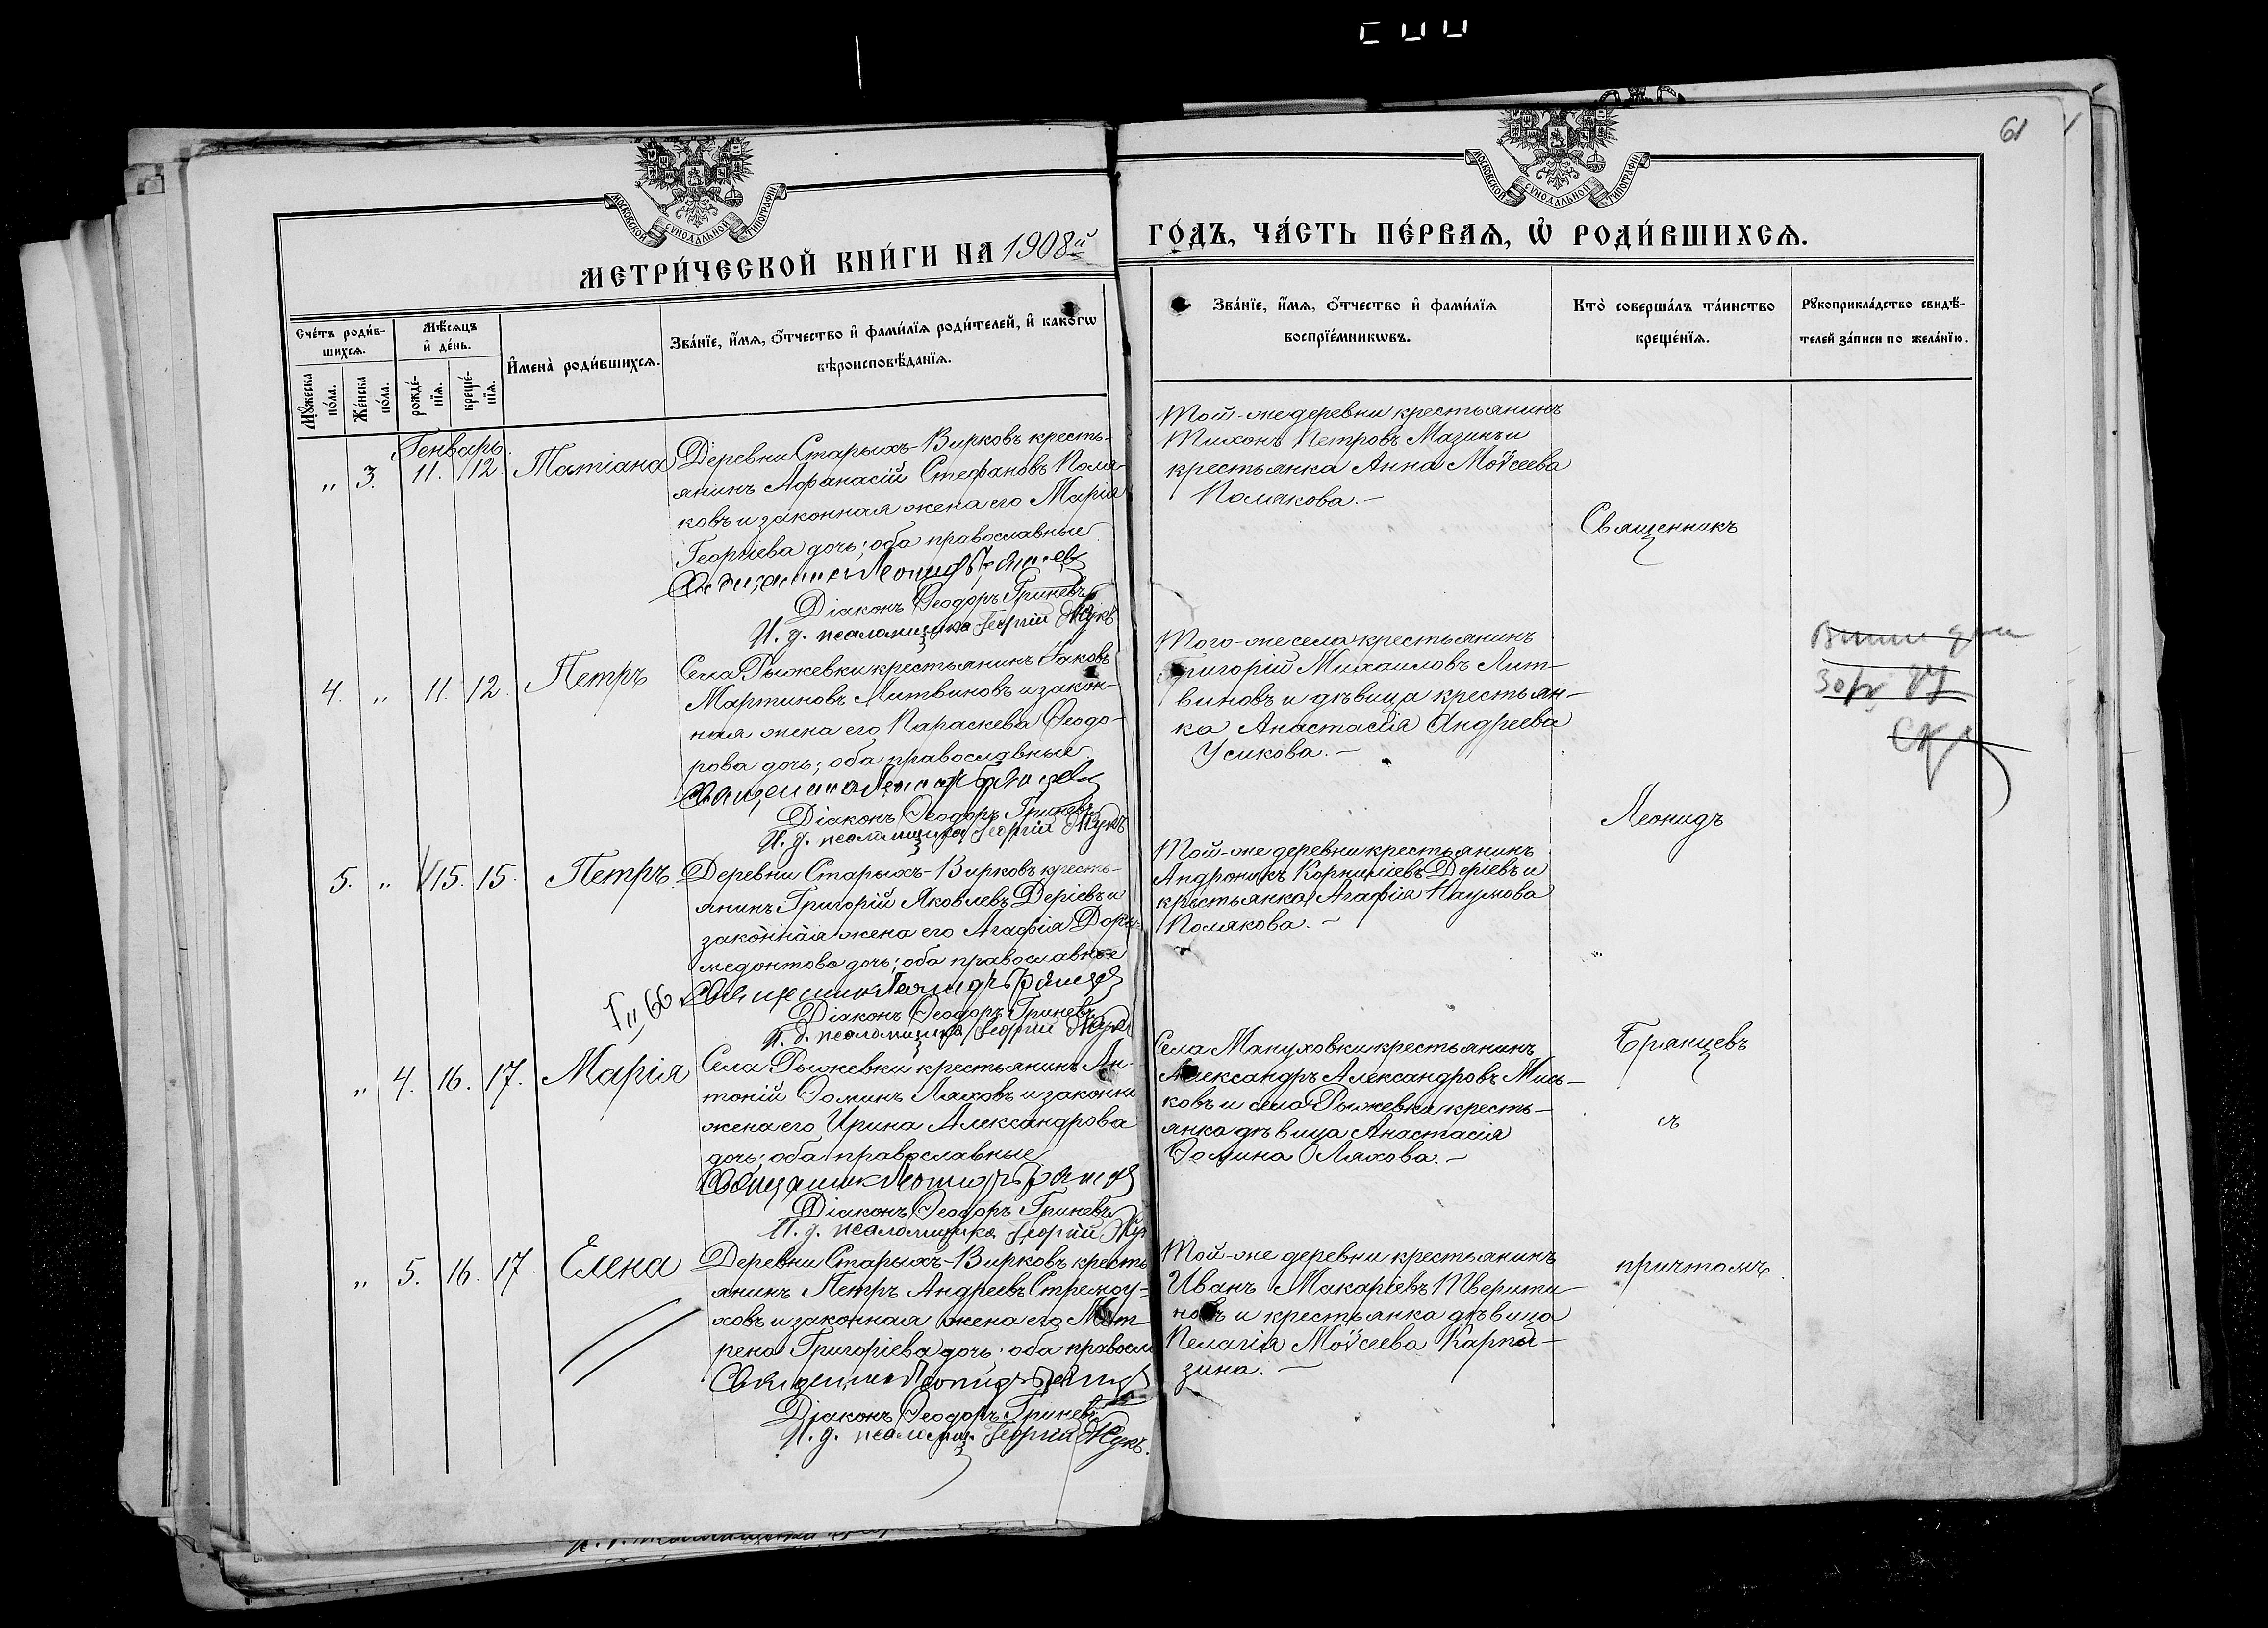 61
МОСКОВСКОЙ СУНОДАЛЬНОЙ ТИПОГРАФІИ
МОСКОВСКОЙ СУНОДАЛЬНОЙ ТИПОГРАФІИ
МЕТРИ́ЧЕСКОЙ КНИ́ГИ НА 1908й
ГО́ДЪ, ЧА́СТЬ ПЕ́РВАѦ, Ѡ҆ РОДИ́ВШИХСѦ.
Сче́тъ роди́в-
шихсѧ.
Мꙋ́жеска
по́ла.
Же́нска
по́ла.
Мѣ́сѧцъ
и҆ де́нь.
рожде́-
нїѧ.
креще́-
нїѧ.
И҆мена̀ роди́вшихсѧ.
Зва́нїе, и҆́мѧ, ѻ҆́тчество и҆ фами́лїѧ роди́телей, и҆ како́гѡ
вѣроисповѣ́данїѧ.
Зва́нїе, и҆́мѧ, ѻ҆́тчество и҆ фами́лїѧ
воспрїе́мникѡвъ.
Кто̀ соверша́лъ та́инство
креще́нїѧ.
Рꙋкоприкла́дство свидѣ́-
телей за́писи по жела́нїю.
Генварь.
" 3. 11. 12. Татіана
Деревни Старыхъ-Вирковъ кресть-
янинъ Афанасій Стефановъ Поля-
ковъ и законная жена его Марія
Георгіева дочь; оба православные
Священникъ Леонидъ Брянцевъ
Діаконъ Ѳеодоръ Гриневъ
И. д. псаломщика Георгій Жукъ
Той-же деревни крестьянинъ
Тихонъ Петровъ Мазинъ и
крестьянка Анна Моѵсеева
Полякова.-
4. " 11. 12. Петръ
Села Рыжевки крестьянинъ Іаковъ
Мартиновъ Литвиновъ и закон-
ная жена его Параскева Ѳеодо-
рова дочь; оба православные
Священникъ Леонидъ Брянцевъ
Діаконъ Ѳеодоръ Гриневъ
И. д. псаломщика Георгій Жукъ
Того-же села крестьянинъ
Григорій Михаиловъ Лит-
виновъ и дѣвица крестьян-
ка Анастасія Андреева
Усикова.-
5. " 15. 15. Петръ.
Деревни Старыхъ-Вирковъ кресть-
янинъ Григорій Яковлевъ Деріевъ и
законная жена его Агафія Дори-
медонтова дочь; оба православные
Священникъ Леонидъ Брянцевъ
Діаконъ Ѳеодоръ Гриневъ
И. д. псаломщика Георгій Жукъ
Той-же деревни крестьянинъ
Андроникъ Корниліевъ Деріевъ и
крестьянка Агафія Наумова
Полякова.-
" 4. 16. 17. Марія
Села Рыжевки крестьянинъ Ан-
тоній Ѳоминъ Ляховъ и законн
жена его Ирина Александрова
дочь; оба православные
Священникъ Леонидъ Брянцевъ
Діаконъ Ѳеодоръ Гриневъ
И. д. псаломщика Георгій Жук
Села Мануховки крестьянинъ
Александръ Александровъ Мись-
ковъ и села Рыжевки кресть-
янка дѣвица Анастасія
Ѳомина Ляхова.-
" 5. 16. 17. Елена
Деревни Старыхъ-Вирковъ кресть
янинъ Петръ Андреевъ Стремоу-
ховъ и законная жена его Мат-
рена Григоріева дочь; оба правосл
Священникъ Леонидъ Брянцевъ
Діаконъ Ѳеодоръ Гриневъ
И. д. псаломщ. Георгій Жукъ.
Той-же деревни крестьянинъ
Иванъ Макаріевъ Тверити-
новъ и крестьянка дѣвица
Пелагія Моѵсеева Карпы-
зина.-
Священникъ
Леонидъ
Брянцевъ
съ
причтомъ